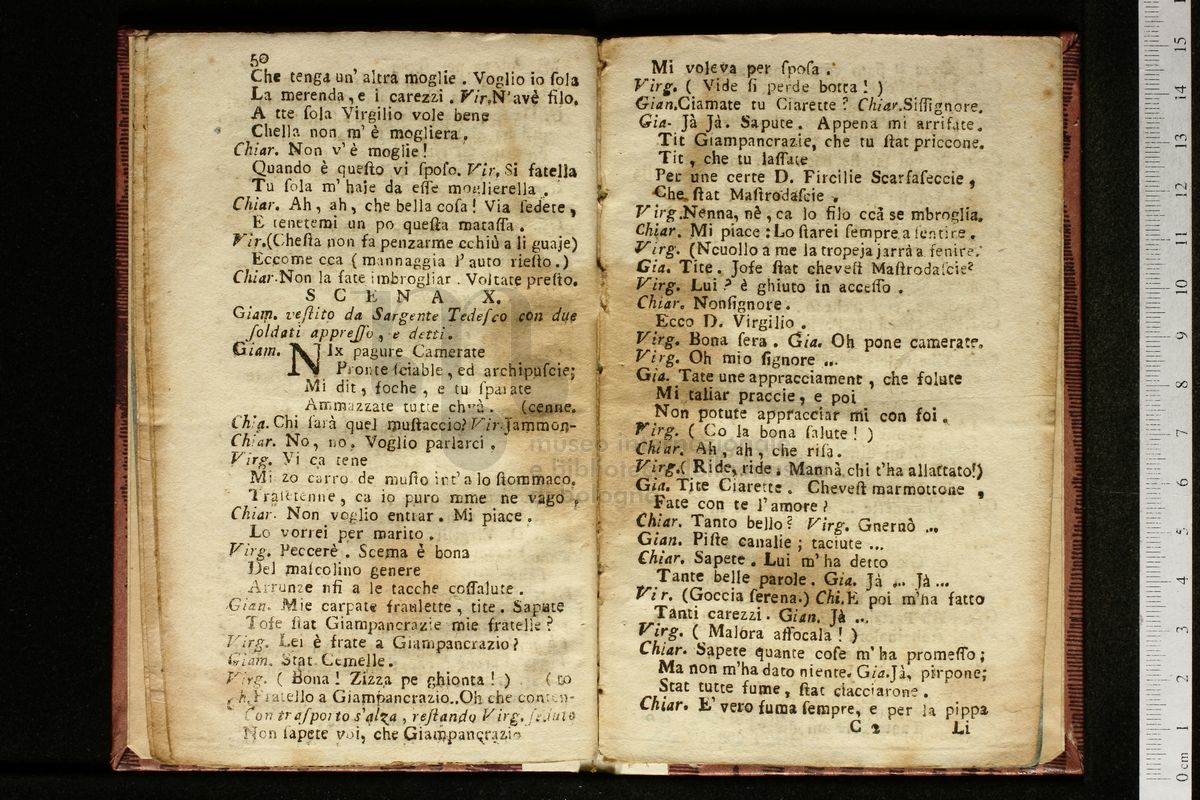 50
Che tenga un' altra moglie . Voglio io ſola
La merenda, e i carezzi . Vir.N'avè filo.
A tte ſola Virgilio vole bene
Chella non m' è mogliera .
Chiar. Non v' è moglie!
Quando è queſto vi ſpoſo. Vir. Si fatella
Tu ſola m' haje da eſſe moglierella .
Chiar. Ah, ah, che bella coſa! Via ſedete,
E tenetemi un po queſta mataſſa .
Vir.(Cheſta non fa penzarme cchiù a li guaje)
Eccome cca ( mannaggia l' auto rieſto. )
Chiar.Non la fate imbrogliar . Voltate preſto.
SCENA X.
Giam. veſtito da Sargente Tedeſco con due
ſoldati appreſſo, e detti.
Giam. NIx pagure Camerate
Pronte ſciable, ed archipuſcie;
Mi dit, foche, e tu ſparate
Ammazzate tutte chvà. (cenne.
Chia. Chi ſarà quel muſtaccio? Vir.Jammon-
Chiar. No, no. Voglio parlarci .
Virg. Vi ca tene
Mizo carro de muſto int' a lo ſtommaco.
Trattienne, ca io puro mme ne vago .
Chiar. Non voglio entrar. Mi piace.
Lo vorrei per marito .
Virg. Peccerè . Scema è bona
Del maſcolino genere
Arrunze nfi a le tacche coſſalute .
Gian. Mie carpate fraulette, tite. Sapute
Toſe ſtat Giampancrazie mie fratelle ?
Virg. Lei è frate a Giampancrazio?
Giam. Stat Cemelle.
Virg. ( Bona! Zizza pe ghionta! ) (to
Ch. Fratello a Giampancrazio..Oh che conten-
Con traſporto s'alza, reſtando Virg. ſeduto
Non ſapete voi, che Giampancrazio
Mi voleva per ſpoſa .
Virg. ( Vide ſi perde botta! )
Gian.Ciamate tu Ciarette? Chiar.Siſſignore.
Gia. Jà Jà. Sapute. Appena mi arrifate.
Tit Giampancrazie, che tu ſtat priccone.
Tit, che tu laſſate
Per une certe D. Fircilie Scarfaſeccie,
Che ſtat Maſtrodaſcie .
Virg.Nenna, nè, ca lo filo ccà se mbroglia.
Chiar. Mi piace: Lo ſtarei ſempre a ſentire.
Virg. (Ncuollo a me la tropeja jarrà a fenire.
Gia. Tite. Joſe ſtat cheveſt Maſtrodaſcie?
Virg. Lui? è ghiuto in acceſſo .
Chiar. Nonſignore.
Ecco D. Virgilio .
Virg. Bona ſera. Gia. Oh pone camerate.
Virg. Oh mio ſignore ...
Gia. Tate une appracciament, che ſolute
Mi taliar praccie, e poi
Non potute appracciar mi con foi.
Virg. ( Co la bona ſalute! )
Chiar. Ah, ah, che riſa.
Virg.( Ride, ride. Mannà chi t'ha allattato!)
Gia. Tite Ciarette. Cheveſt marmottone ,
Fate con te l'amore?
Chiar. Tanto bello? Virg. Gnernò ...
Gian. Piſte canalie; taciute ...
Chiar. Sapete. Lui m'ha detto
Tante belle parole. Gia. Jà ... Jà ...
Vir. (Goccia ſerena.) Chi.E poi m'ha fatto
Tanti carezzi. Gian. Jà ...
Virg. ( Malora affocala! )
Chiar. Sapete quante coſe m'ha promeſſo;
Ma non m'ha dato niente. Gia.Jà, pirpone;
Stat tutte fume, ſtat ciacciarone .
Chiar. E' vero fuma ſempre, e per la pippa
C 2 Li